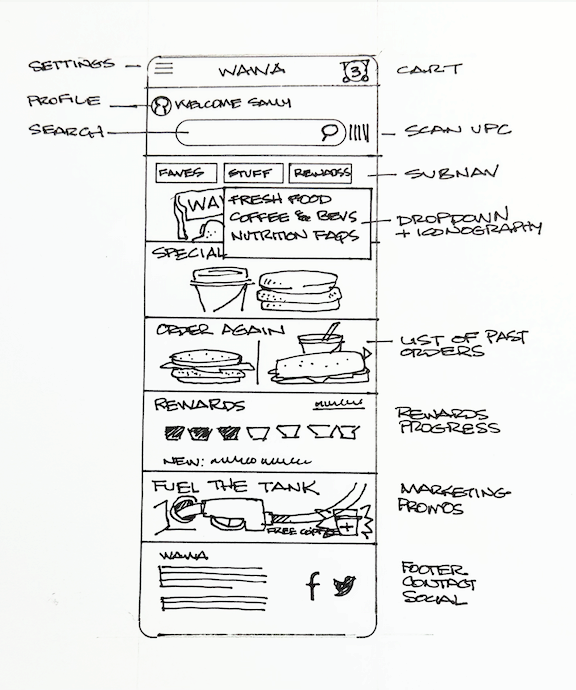 SETTINGS
WAWA
3
CART
PROFILE
WELCOME SALLY
SEARCH
SCAN UPC
FAVES
STUFF
REWARDS
SUBNAV
WA
FRESH FOOD
COFFEE & BEVS
NUTRITION FAQS
DROPDOWN
+ ICONOGRAPHY
SPECIAL
ORDER AGAIN
LIST OF PAST
ORDERS
REWARDS
REWARDS
PROGRESS
NEW:
FUEL THE TANK
FREE COFFEE
MARKETING
PROMOS
WAWA
f
FOOTER
CONTACT
SOCIAL